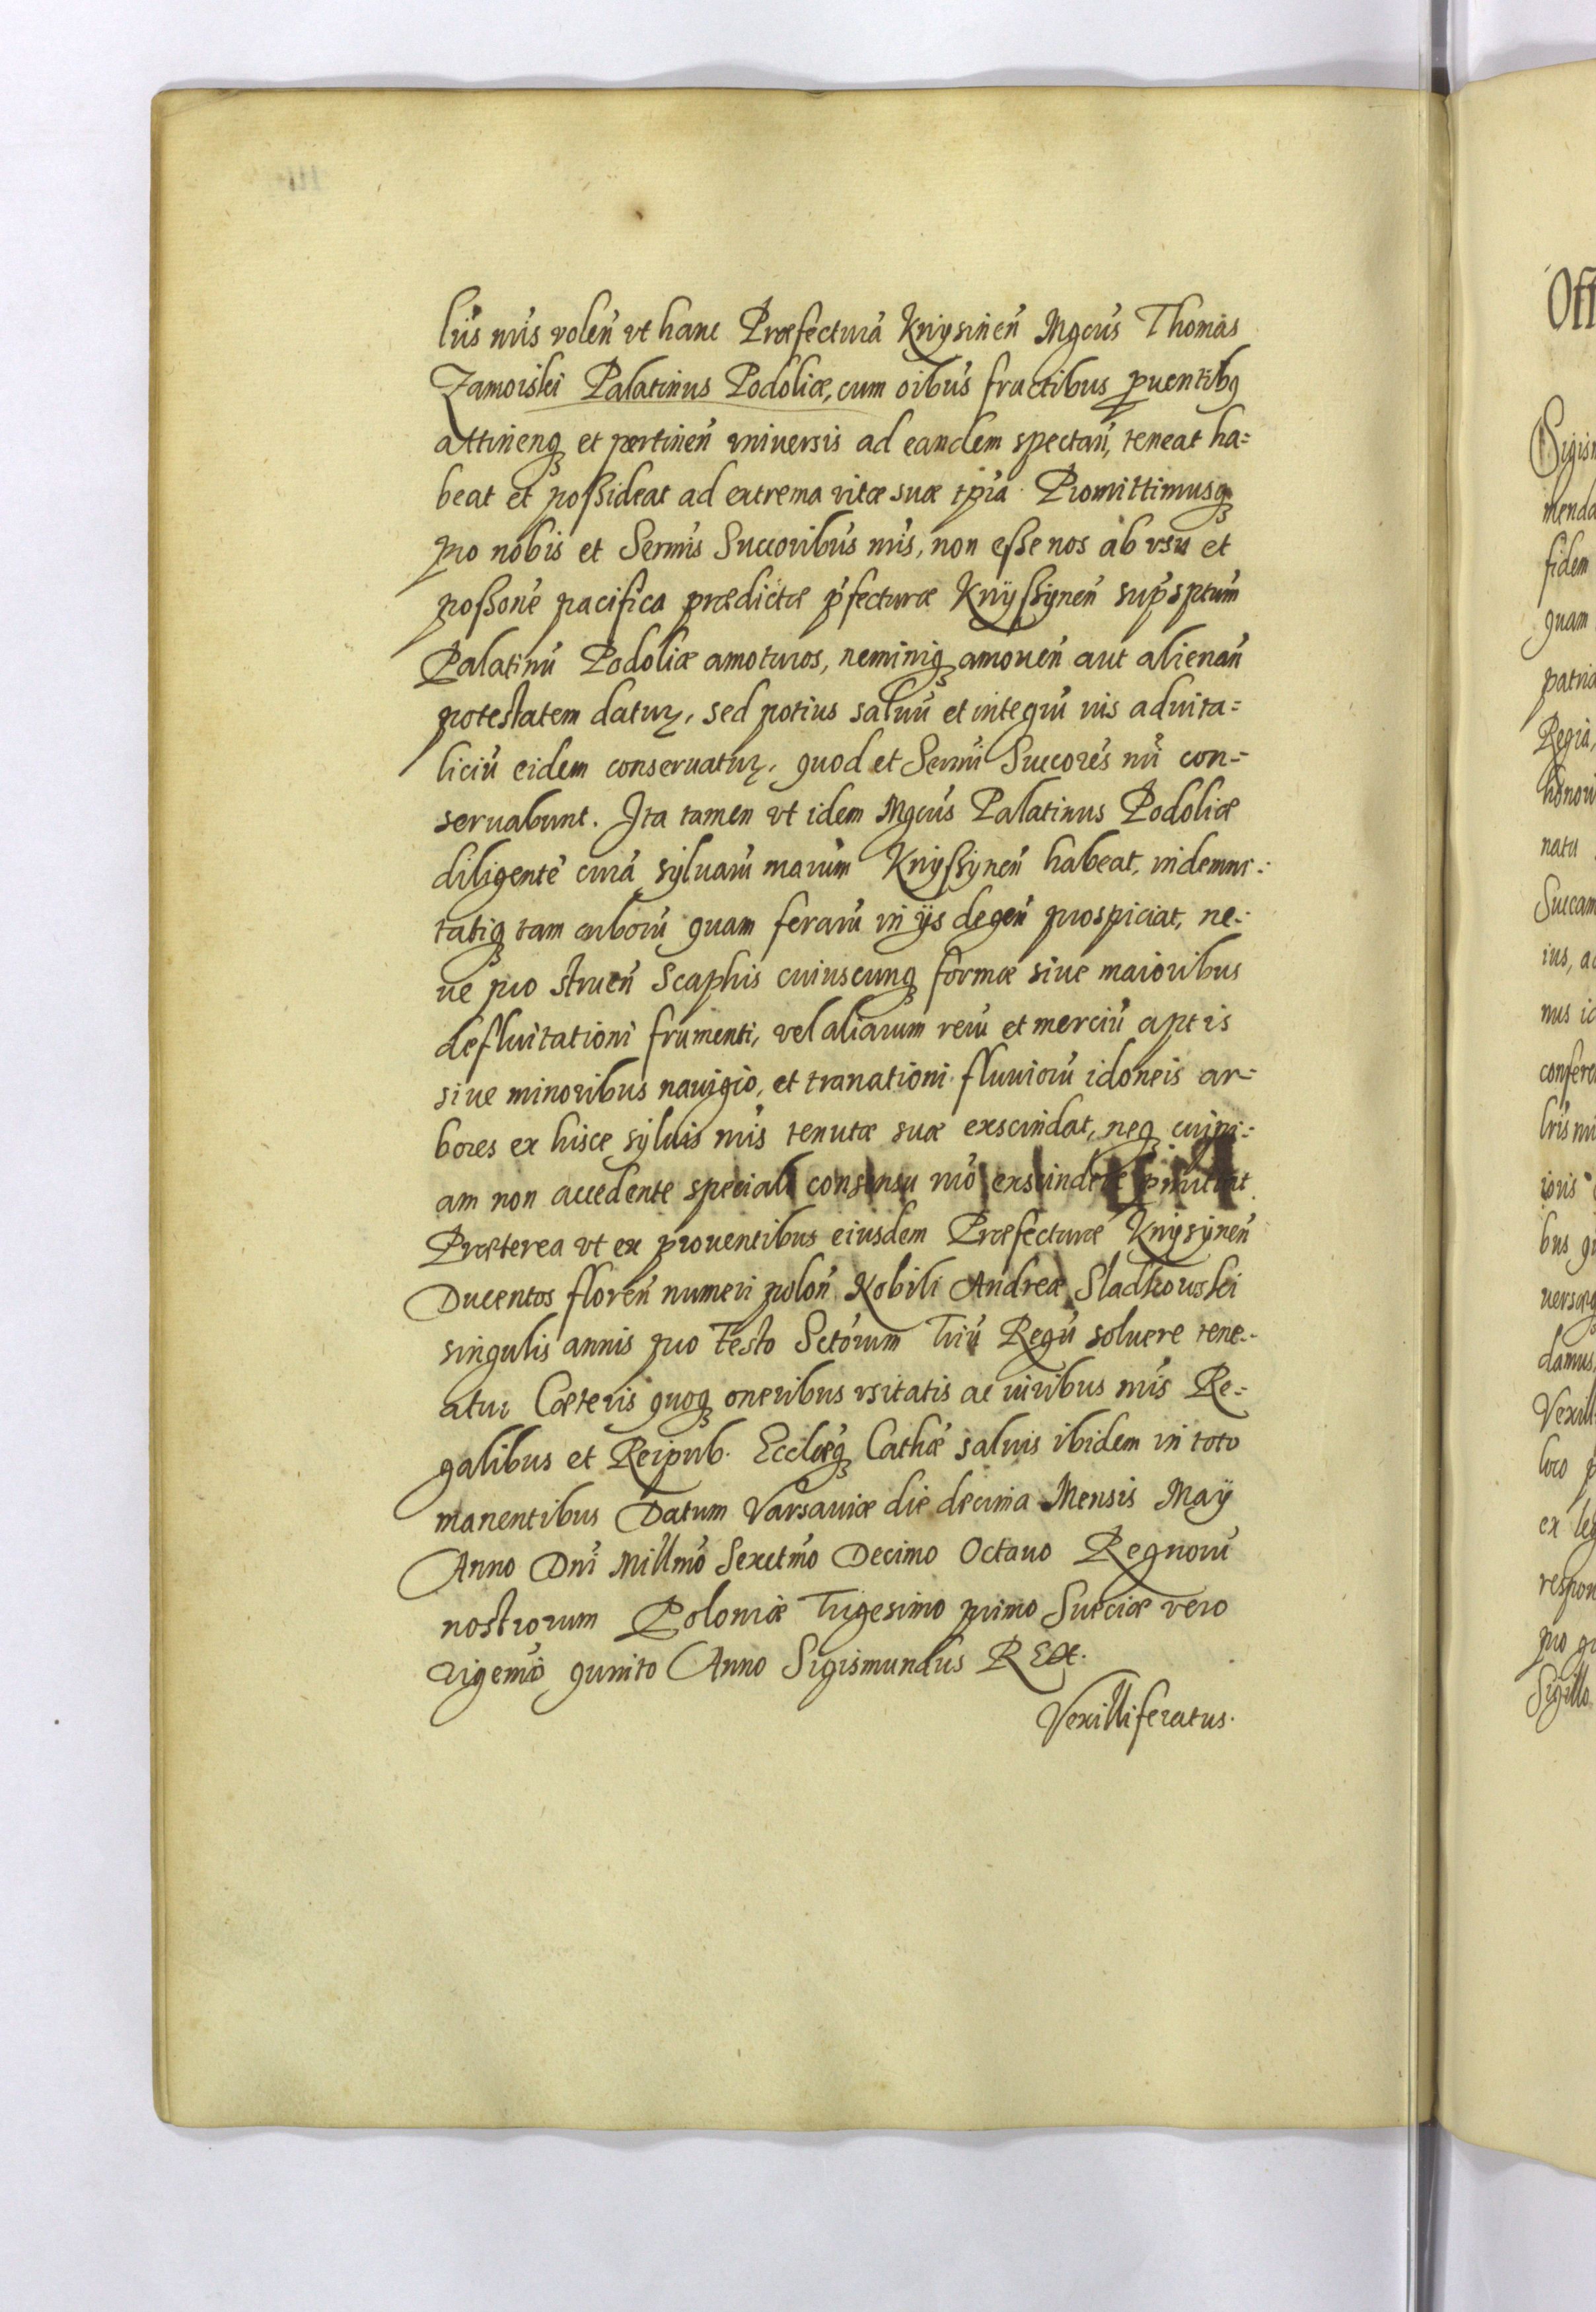 lris nris volen vt hanc Præfectura Knysinen Mgcus Thomas
Zamoiski Palatinus Podoliæ, cum oibus fructibus puentibq
attinenq et pertinen vniversis ad eandem spectan, teneat ha=
beat et poßideat ad extrema vitæ suæ tpra. Promittimusq
pro nobis et Sermis Succoribus nris, non eße nos ab vsu et
poßone pacifica prædictæ pfecturæ Knyßynen supsptum
Palatinu Podoliæ amoturos, neminiq amouen aut alienan
potestatem datur, sed potius saluu et integru ius aduita=
liciu eidem conseruatur, quod et Sermi Succores nri con=
seruabunt. Ita tamen vt idem Mgcus Palatinus Podoliæ
diligente cura syluaru nrarum Knyßynen habeat, indemni=
tatiq tam arboru quam feraru in ijs degen prospiciat, ne=
ue pro struen scaphis cuiuscunq formæ siue maioribus
defluitationi frumenti, vel aliarum reru et merciu aptis
siue minoribus nauigio, et tranationi fluuioru idoneis ar=
bores ex hisce syluis nris tenutæ suæ exscindat, neq cuipi=
am non accedente speciali consensu nro exscindere pmittat
Præterea vt ex prouentibus eiusdem Præfecturæ Knysynen
Ducentos floren numeri polon Nobili Andreæ Sladkowski
singulis annis pro Festo Sctorum Triu Regu soluere tene=
atur Cæteris quoq oneribus vsitatis ac iuribus nris Re=
galibus et Reipub. Ecclæq Cathæ saluis ibidem in toto
manentibus Datum Varsauiæ die decima Mensis Maÿ
Anno Dni Millmo Sexctmo Decimo Octauo Regnoru
nostrorum Poloniæ Trigesimo primo Sueciæ vero
vigemo quinto Anno Sigismundus REX.
Vexilliferatus.